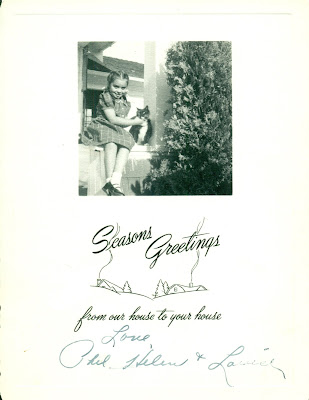 Seasons
Greetings
from our house to your house
Love
Phil - Helen &